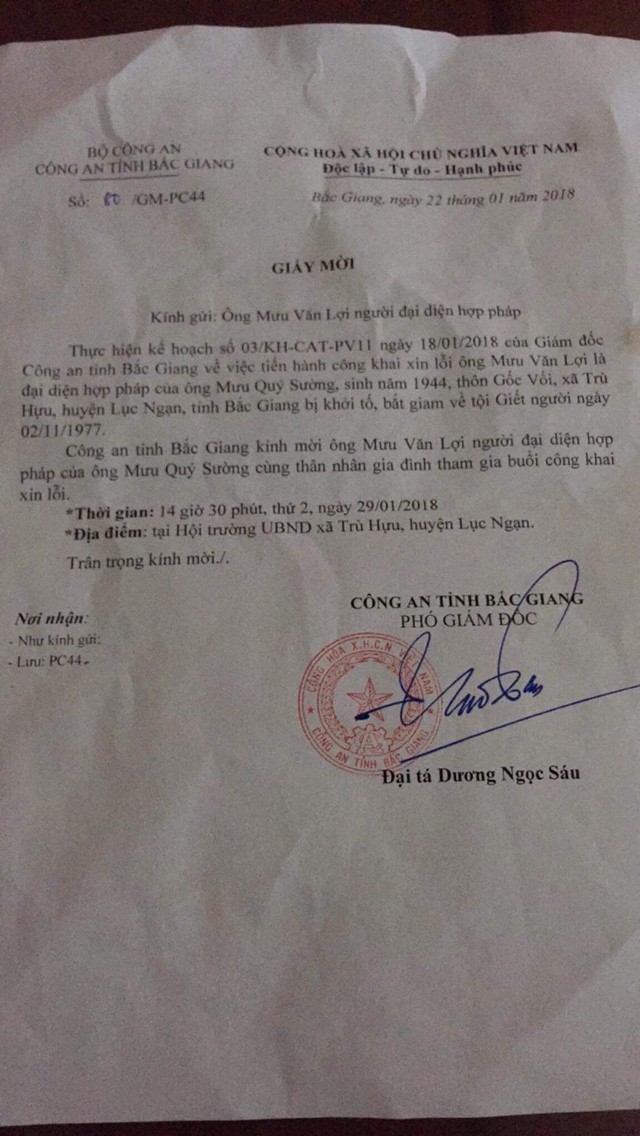 BỘ CÔNG AN
CÔNG AN TỈNH BẮC GIANG
CỘNG HOÀ XÃ HỘI CHỦ NGHĨA VIỆT NAM
Độc lập - Tự do - Hạnh phúc
Số: /GM-PC44
Bắc Giang, ngày 22 tháng 01 năm 2018
GIẤY MỜI
Kính gửi: Ông Mưu Văn Lợi người đại diện hợp pháp
Thực hiện kế hoạch số 03/KH-CAT-PV11 ngày 18/01/2018 của Giám đốc
Công an tỉnh Bắc Giang về việc tiến hành công khai xin lỗi ông Mưu Văn Lợi là
đại diện hợp pháp của ông Mưu Quý Sường, sinh năm 1944, thôn Gốc Vối, xã Trù
Hựu, huyện Lục Ngạn, tỉnh Bắc Giang bị khởi tố, bắt giam về tội Giết người ngày
02/11/1977.
Công an tỉnh Bắc Giang kính mời ông Mưu Văn Lợi người đại diện hợp
pháp của ông Mưu Quý Sường cùng thân nhân gia đình tham gia buổi công khai
xin lỗi.
*Thời gian: 14 giờ 30 phút, thứ 2, ngày 29/01/2018
*Địa điểm: tại Hội trường UBND xã Trù Hựu, huyện Lục Ngạn.
Trân trọng kính mời./.
Nơi nhận:
- Như kính gửi:
- Lưu: PC44.
CÔNG AN TỈNH BẮC GIANG
PHÓ GIÁM ĐỐC
CỘNG HÒA X.H.C.N VIỆT NAM
CÔNG AN TỈNH BẮC GIANG
Đại tá Dương Ngọc Sáu